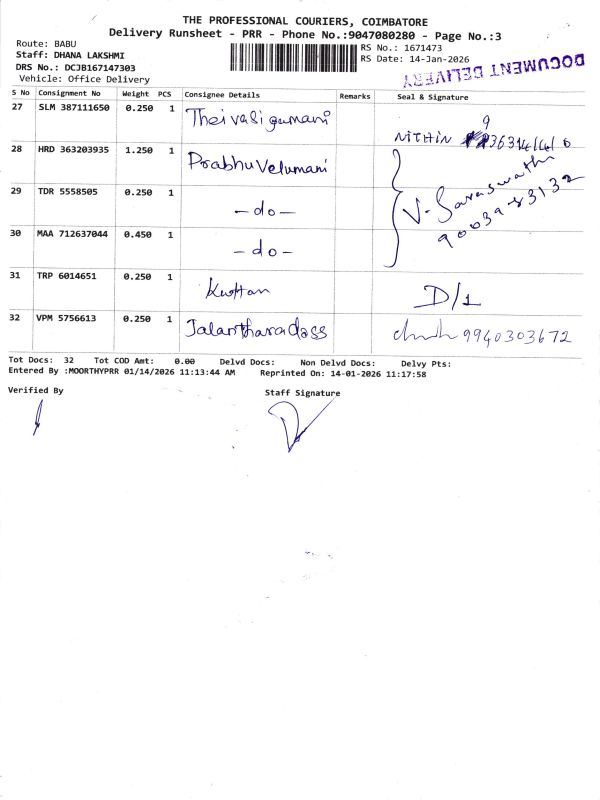 THE PROFESSIONAL COURIERS, COIMBATORE
Delivery Runsheet - PRR - Phone No.:9047080280 - Page No.:3
Route: BABU
Staff: DHANA LAKSHMI
DRS No.: DCJB167147303
Vehicle: Office Delivery
RS No.: 1671473
RS Date: 14-Jan-2026
DOCUMENT DELIVERY
S No Consignment No Weight PCS Consignee Details Remarks Seal & Signature
27 SLM 387111650 0.250 1 Theivasigamani NITHIN
28 HRD 363203935 1.250 1 Prabhu Velumani
29 TDR 5558505 0.250 1 -do- V. Saraswathi
30 MAA 712637044 0.450 1 -do- 9003983132
31 TRP 6014651 0.250 1 Kuttan D/1
32 VPM 5756613 0.250 1 Jalantharadass 9940303672
Tot Docs: 32 Tot COD Amt: 0.00 Delvd Docs: Non Delvd Docs: Delvy Pts:
Entered By :MOORTHYPRR 01/14/2026 11:13:44 AM Reprinted On: 14-01-2026 11:17:58
Verified By Staff Signature